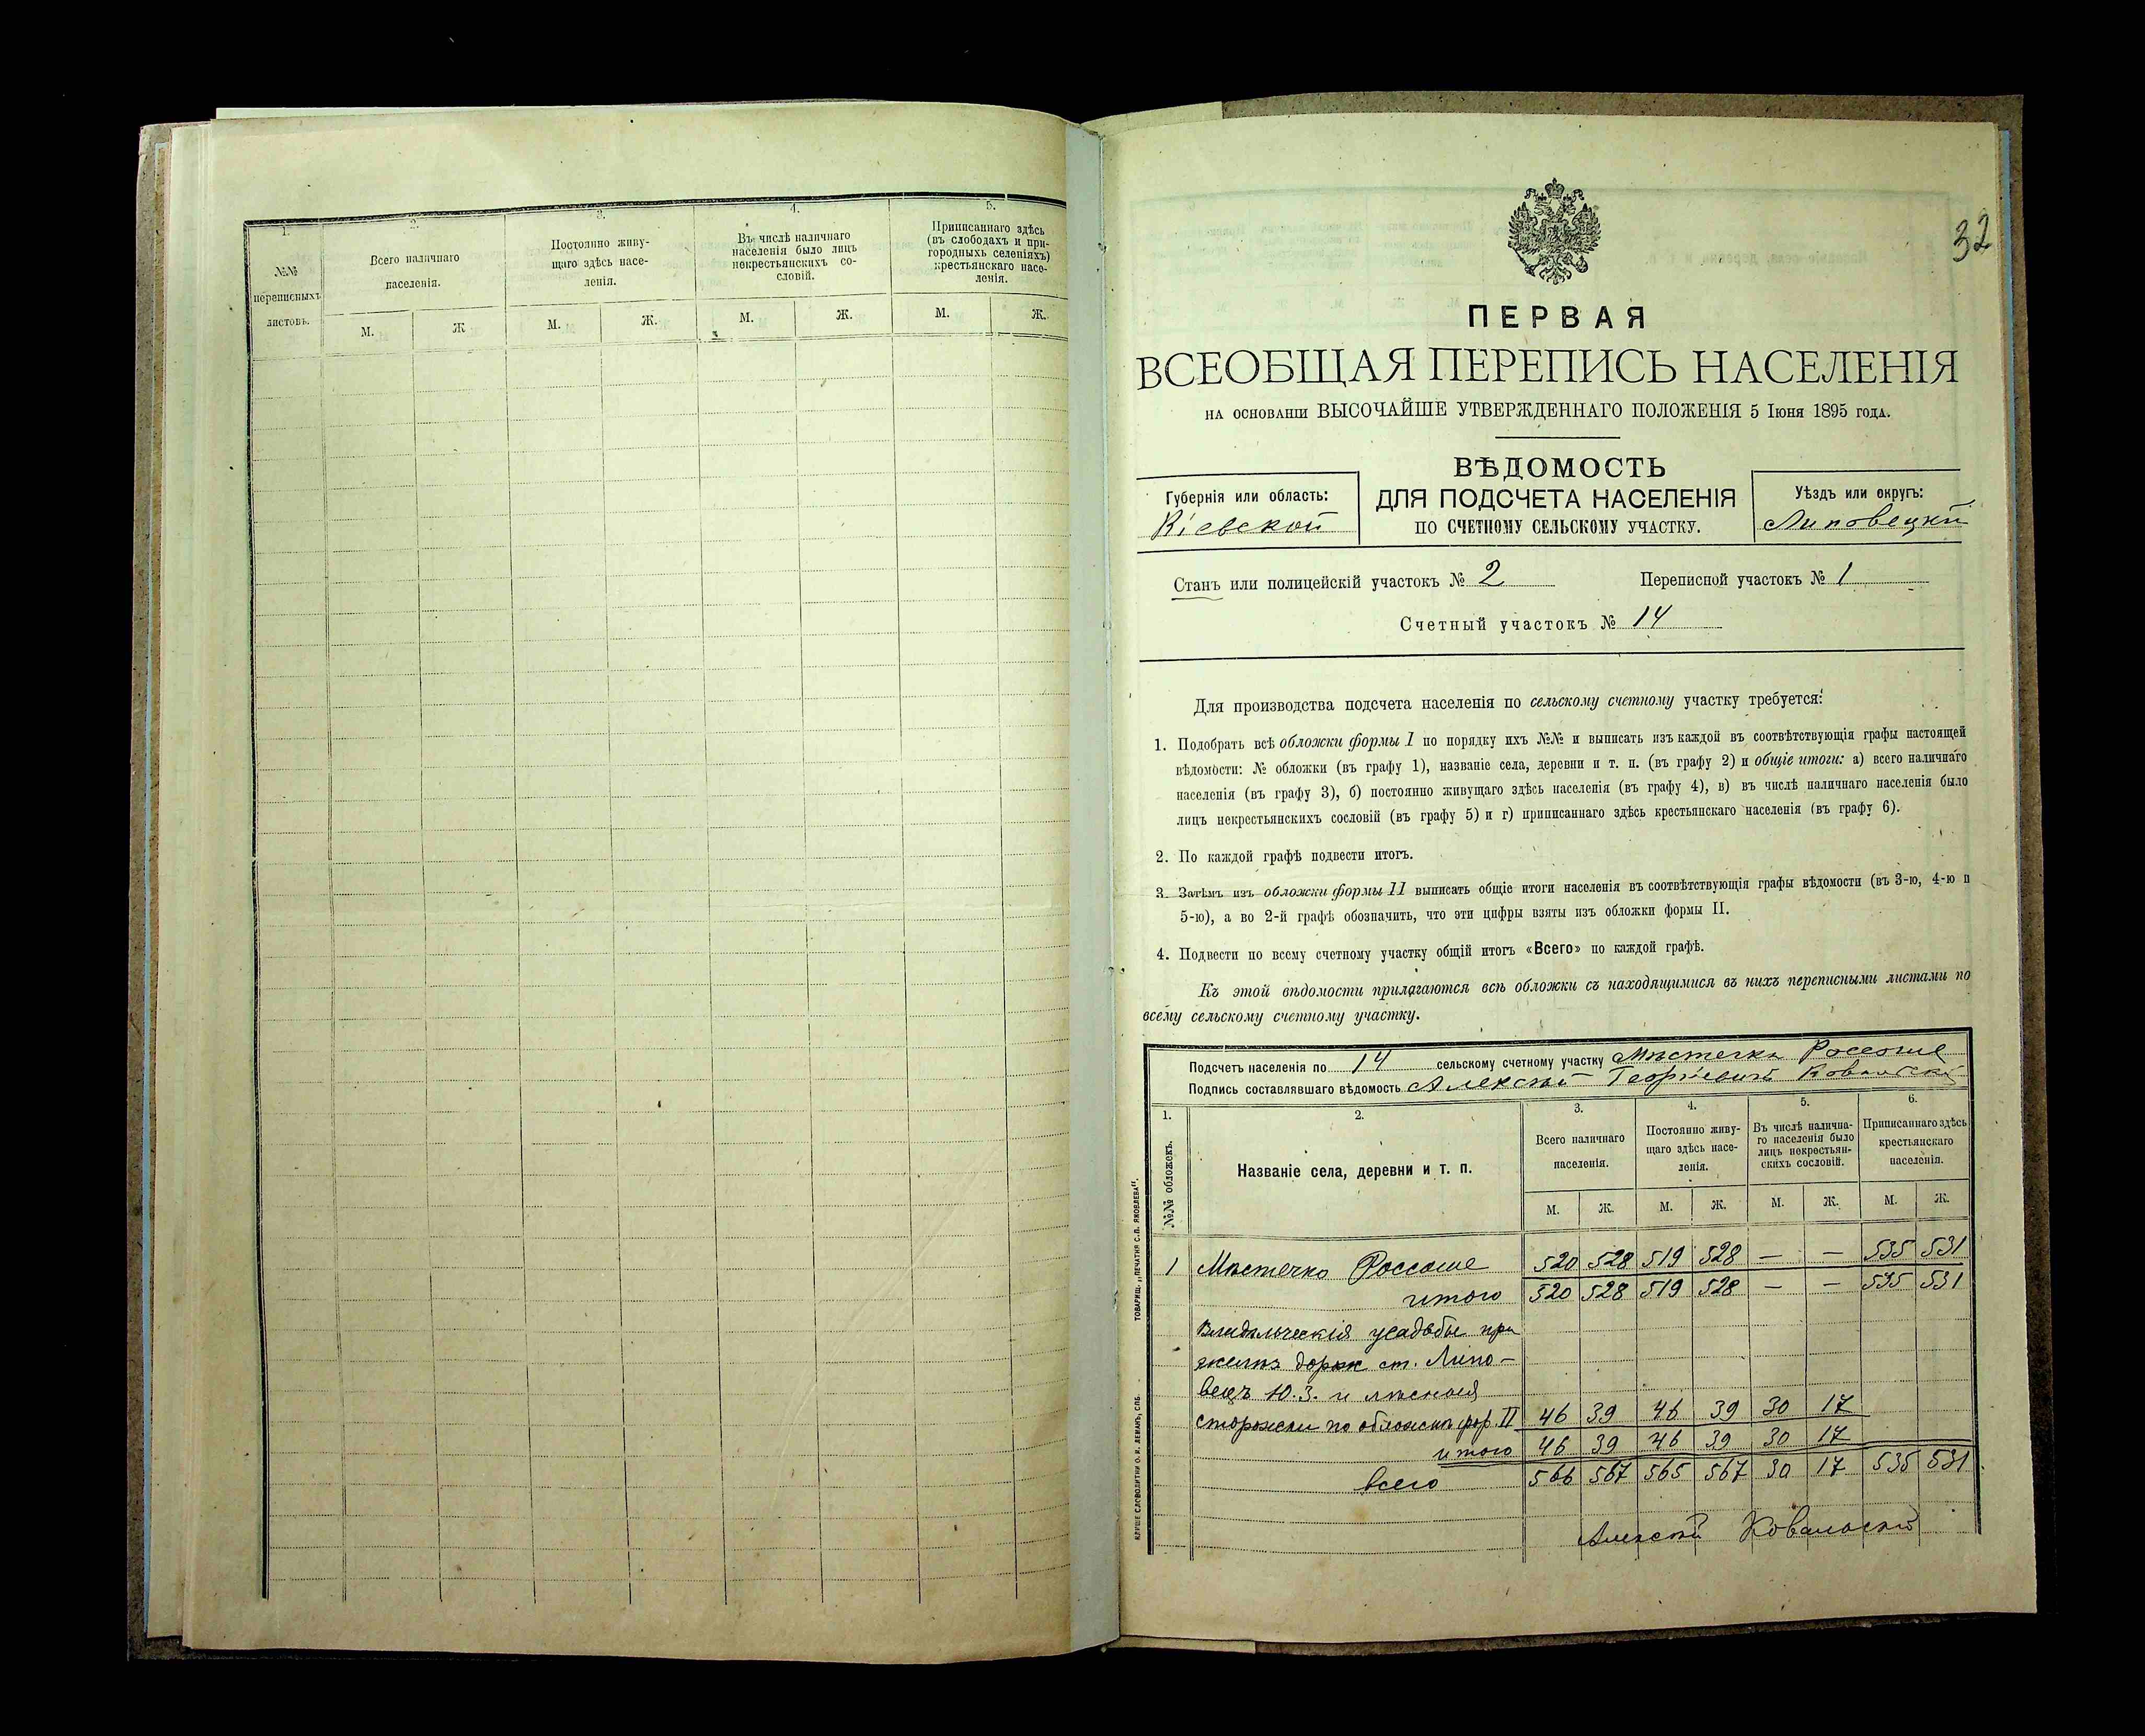 1.
2.
3.
4.
5.
№№
переписныхъ
листовъ.
Всего наличнаго
населенія.
Постоянно живу-
щаго здѣсь насе-
ленія.
Въ числѣ наличнаго
населенія было лицъ
некрестьянскихъ со-
словій.
Приписаннаго здѣсь
(въ слободахъ и при-
городныхъ селеніяхъ)
крестьянскаго насе-
ленія.
М. Ж М. Ж. М. Ж. М. Ж.
32
ПЕРВАЯ
ВСЕОБЩАЯ ПЕРЕПИСЬ НАСЕЛЕНІЯ
НА ОСНОВАНІИ ВЫСОЧАЙШЕ УТВЕРЖДЕННАГО ПОЛОЖЕНІЯ 5 Іюня 1895 ГОДА.
ВѢДОМОСТЬ
ДЛЯ ПОДСЧЕТА НАСЕЛЕНІЯ
ПО СЧЕТНОМУ СЕЛЬСКОМУ УЧАСТКУ.
Губернія или область:
Кіевской
Уѣздъ или округъ:
Липовецкій
Станъ или полицейскій участокъ № 2 Переписной участокъ № 1
Счетный участокъ № 14
Для производства подсчета населенія по сельскому счетному участку требуется:
1. Подобрать всѣ обложки формы I по порядку ихъ №№ и выписать изъ каждой въ соотвѣтствующія графы настоящей
вѣдомости: № обложки (въ графу 1), названіе села, деревни и т. п. (въ графу 2) и общіе итоги: а) всего наличнаго
населенія (въ графу 3), б) постоянно живущаго здѣсь населенія (въ графу 4), в) въ числѣ наличнаго населенія было
лицъ некрестьянскихъ сословій (въ графу 5) и г) приписаннаго здѣсь крестьянскаго населенія (въ графу 6).
2. По каждой графѣ подвести итогъ.
3. Затѣмъ изъ обложки формы II выписать общіе итоги населенія въ соотвѣтствующія графы вѣдомости (въ 3-ю, 4-ю и
5-ю), а во 2-й графѣ обозначить, что эти цифры взяты изъ обложки формы II.
4. Подвести по всему счетному участку общій итогъ «Всего» по каждой графѣ.
Къ этой вѣдомости прилагаются всѣ обложки съ находящимися въ нихъ переписными листами по
всему сельскому счетному участку.
Подсчетъ населенія по 14 сельскому счетному участку Мѣстечка Россоше
Подпись составлявшаго вѣдомость Алексѣй Георгіевичъ Ковальскій
1. 2. 3. 4. 5. 6.
№№ обложекъ.
Названіе села, деревни и т. п.
Всего наличнаго
населенія.
Постоянно живу-
щаго здѣсь насе-
ленія.
Въ числѣ налична-
го населенія было
лицъ некрестьян-
скихъ сословій.
Приписаннаго здѣсь
крестьянскаго
населенія.
М. Ж. М. Ж. М. Ж. М. Ж.
1 Мѣстечко Россоше 520 528 519 528 — — 535 531
итого 520 528 519 528 — — 535 531
Владѣльческія усадьбы при
желѣз дорож ст. Липо-
вецъ Ю.З. и лѣсныя
сторожки по обложкѣ фор. II 46 39 46 39 30 17
итого 46 39 46 39 30 17
всего 566 567 565 567 30 17 535 531
Алексѣй Ковальскій
ТОВАРИЩ. „ПЕЧАТНЯ С.П. ЯКОВЛЕВА“.
КЛИШЕ СЛОВОЛИТНИ О. И. ЛЕМАНЪ, СПБ.